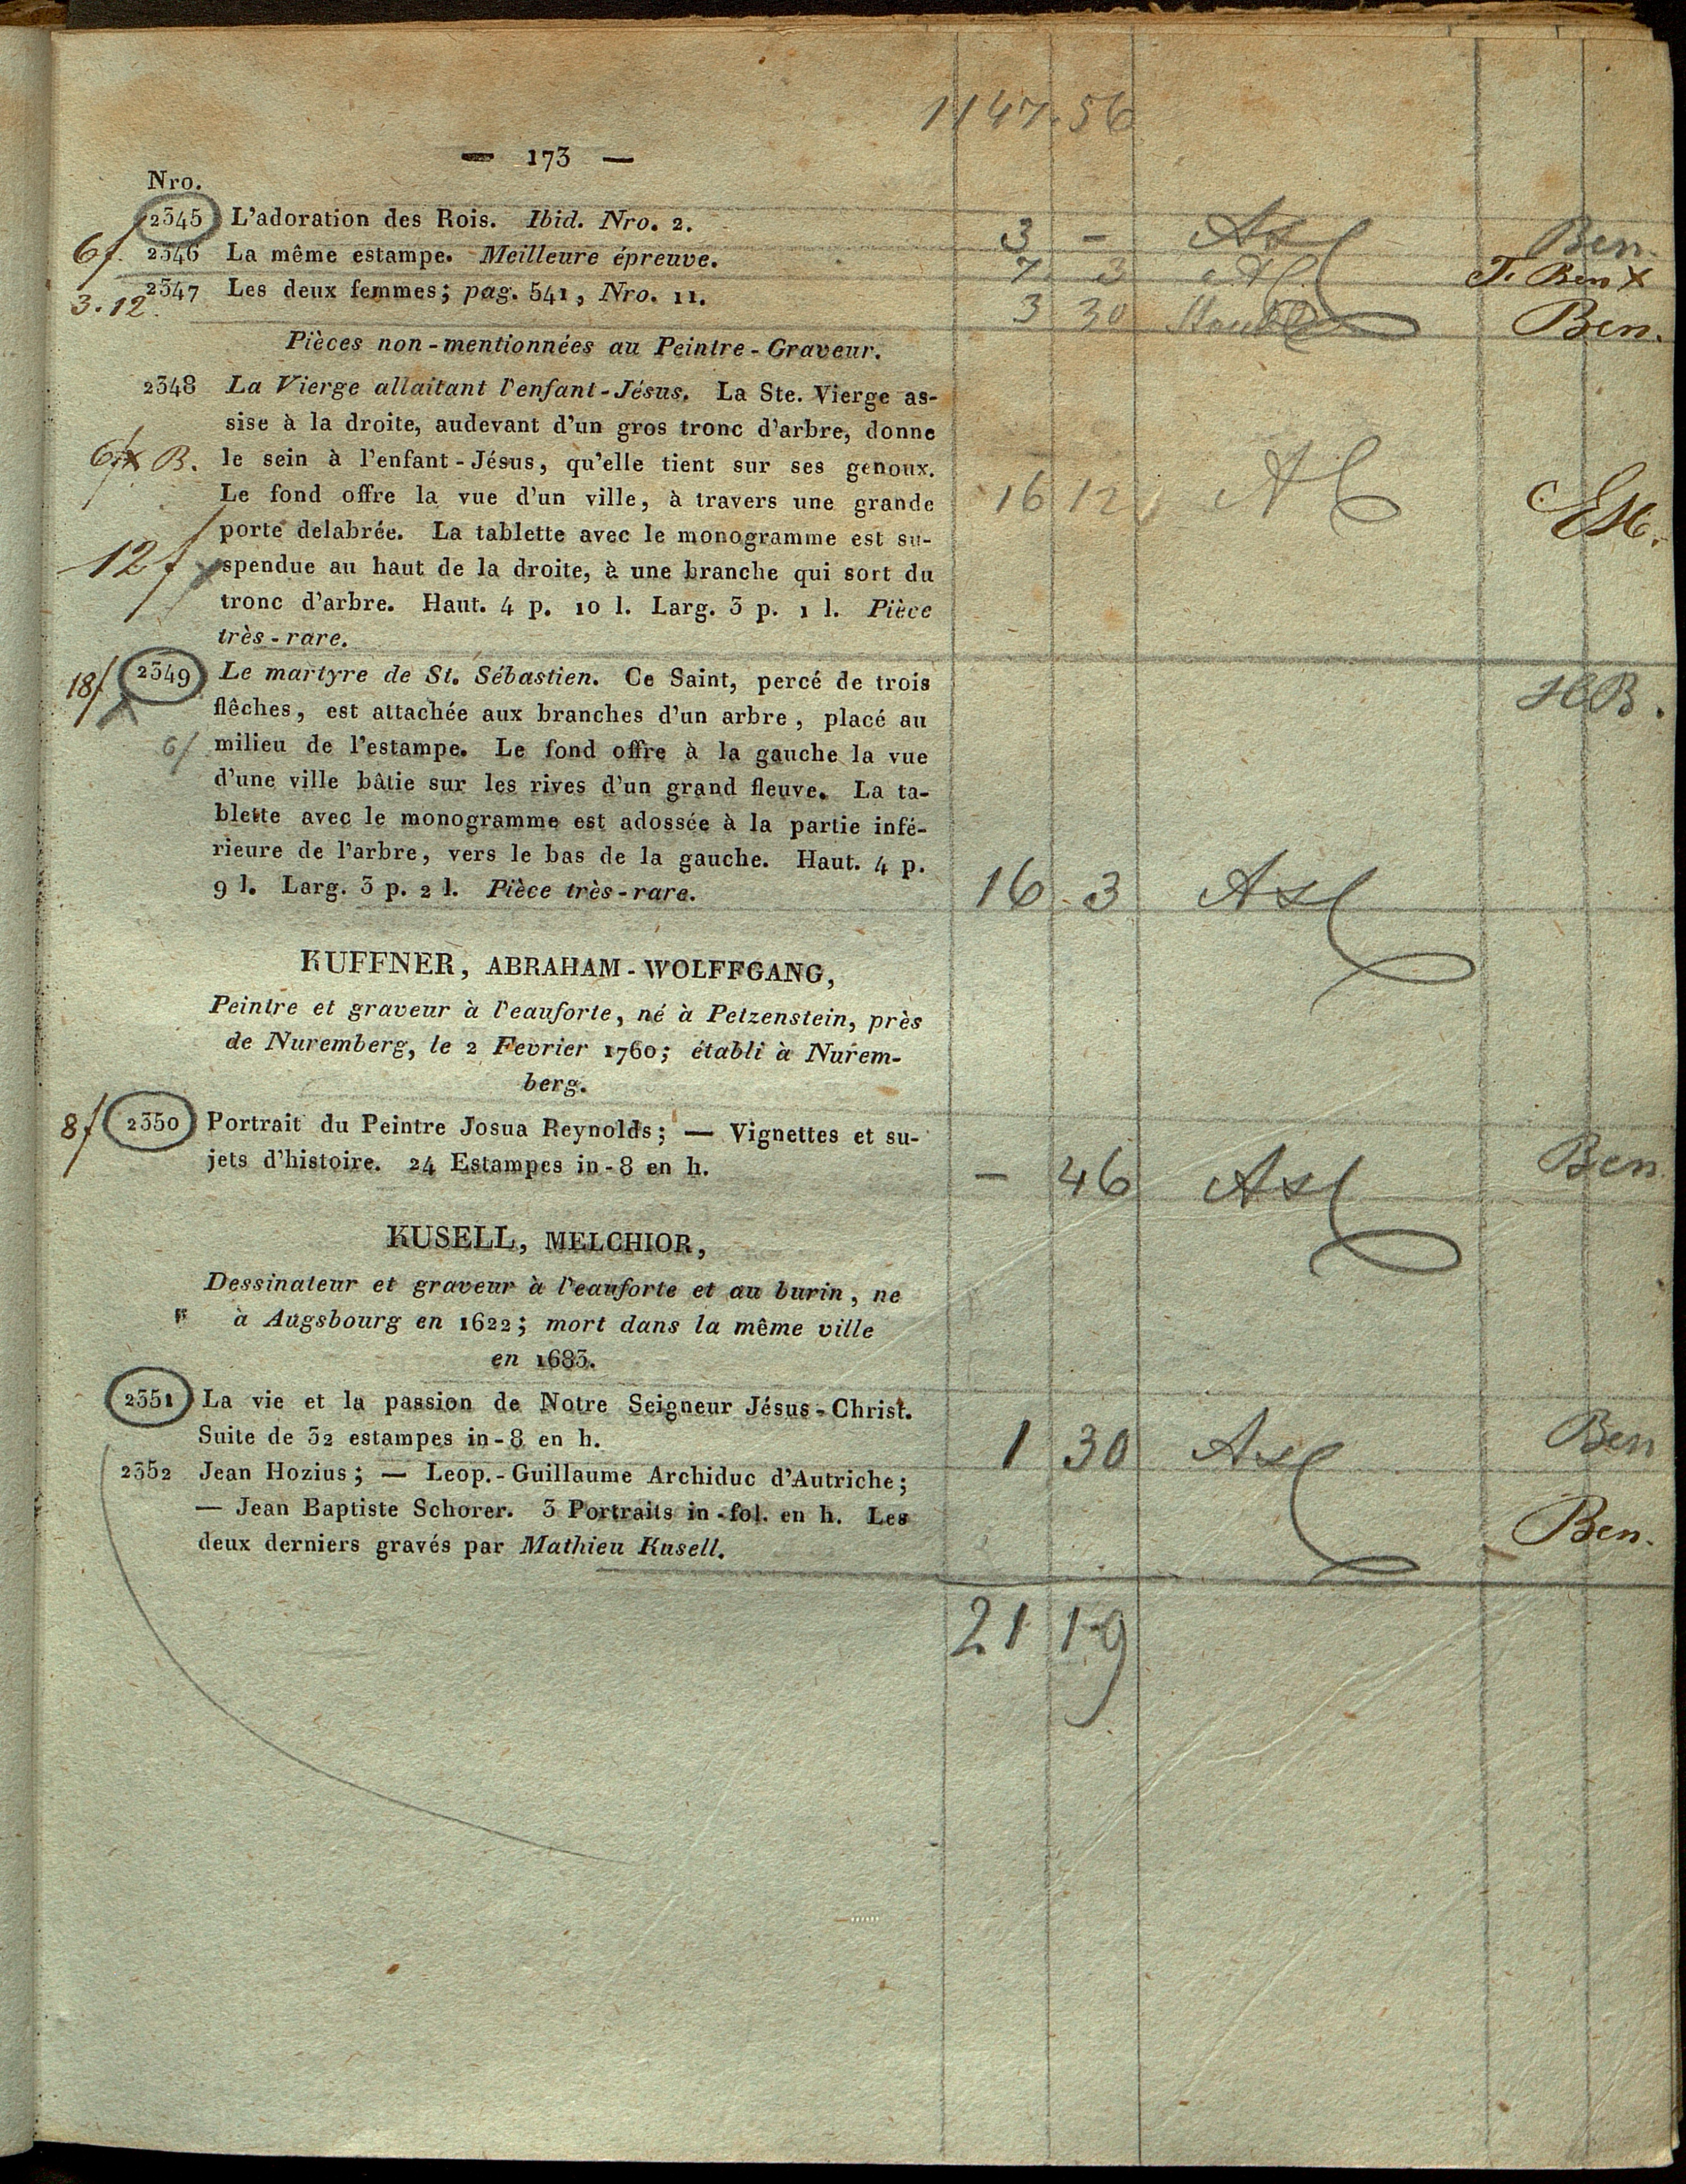 1147.56
— 173 —
Nro.
2345 L'adoration des Rois. Ibid. Nro. 2. 3 - Ben.
6f. 2346 La même estampe. Meilleure épreuve. 7. 3 T. Ben x
3.12. 2347 Les deux femmes; pag. 541, Nro. 11. 3 30 Ben.
Pièces non-mentionnées au Peintre-Graveur.
2348 La Vierge allaitant l'enfant-Jésus. La Ste. Vierge as-
sise à la droite, audevant d'un gros tronc d'arbre, donne
B. le sein à l'enfant-Jésus, qu'elle tient sur ses genoux.
Le fond offre la vue d'un ville, à travers une grande 16 12
porte delabrée. La tablette avec le monogramme est su-
12f spendue au haut de la droite, à une branche qui sort du
tronc d'arbre. Haut. 4 p. 10 l. Larg. 3 p. 1 l. Pièce
très-rare.
18f 2349 Le martyre de St. Sébastien. Ce Saint, percé de trois HB.
flêches, est attachée aux branches d'un arbre, placé au
6f milieu de l'estampe. Le fond offre à la gauche la vue
d'une ville bâtie sur les rives d'un grand fleuve. La ta-
blette avec le monogramme est adossée à la partie infé-
rieure de l'arbre, vers le bas de la gauche. Haut. 4 p.
9 l. Larg. 3 p. 2 l. Pièce très-rare. 16 . 3
KUFFNER, ABRAHAM-WOLFFGANG,
Peintre et graveur à l'eauforte, né à Petzenstein, près
de Nuremberg, le 2 Fevrier 1760; établi à Nurem-
berg.
8f 2350 Portrait du Peintre Josua Reynolds; — Vignettes et su-
jets d'histoire. 24 Estampes in-8 en h. - 46 Ben
KUSELL, MELCHIOR,
Dessinateur et graveur à l'eauforte et au burin, ne
à Augsbourg en 1622; mort dans la même ville
en 1683.
2351 La vie et la passion de Notre Seigneur Jésus-Christ.
Suite de 32 estampes in-8 en h. 1 30 Ben
2352 Jean Hozius; — Leop.-Guillaume Archiduc d'Autriche;
— Jean Baptiste Schorer. 3 Portraits in-fol. en h. Les Ben.
deux derniers gravés par Mathieu Kusell.
21 19